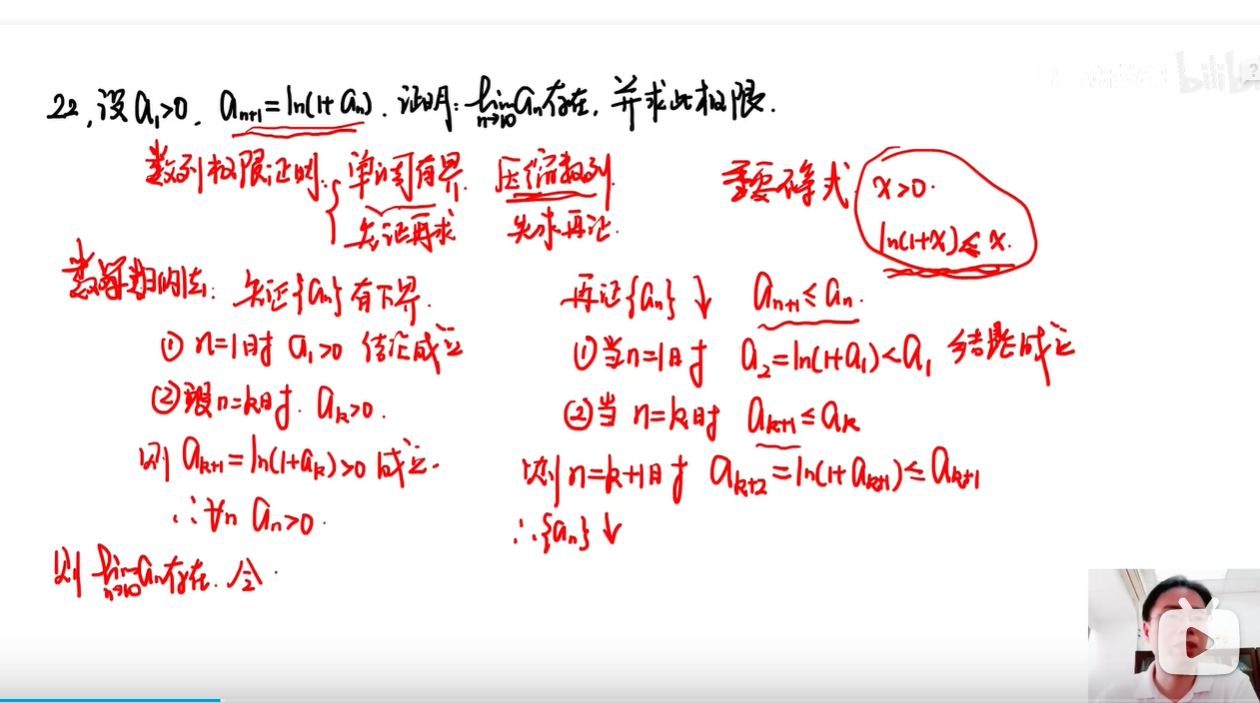 22,设a₁>0, aₙ₊₁=ln(1+aₙ). 证明: lim n→∞ aₙ存在, 并求此极限.
数列极限证明. { 单调有界. 压缩数列.
先证再求 先求再证.
重要不等式. x>0.
ln(1+x)≤x.
数学归纳法: 先证{aₙ}有下界.
① n=1时 a₁>0 结论成立
②设n=k时. aₖ>0.
则 aₖ₊₁=ln(1+aₖ)>0 成立.
∴∀n aₙ>0.
再证{aₙ}↓ aₙ₊₁≤aₙ.
①当n=1时 a₂=ln(1+a₁)<a₁ 结论成立
②当 n=k时 aₖ₊₁≤aₖ
则 n=k+1时 aₖ₊₂=ln(1+aₖ₊₁)≤aₖ₊₁
∴{aₙ}↓
则 lim n→∞ aₙ存在. 令